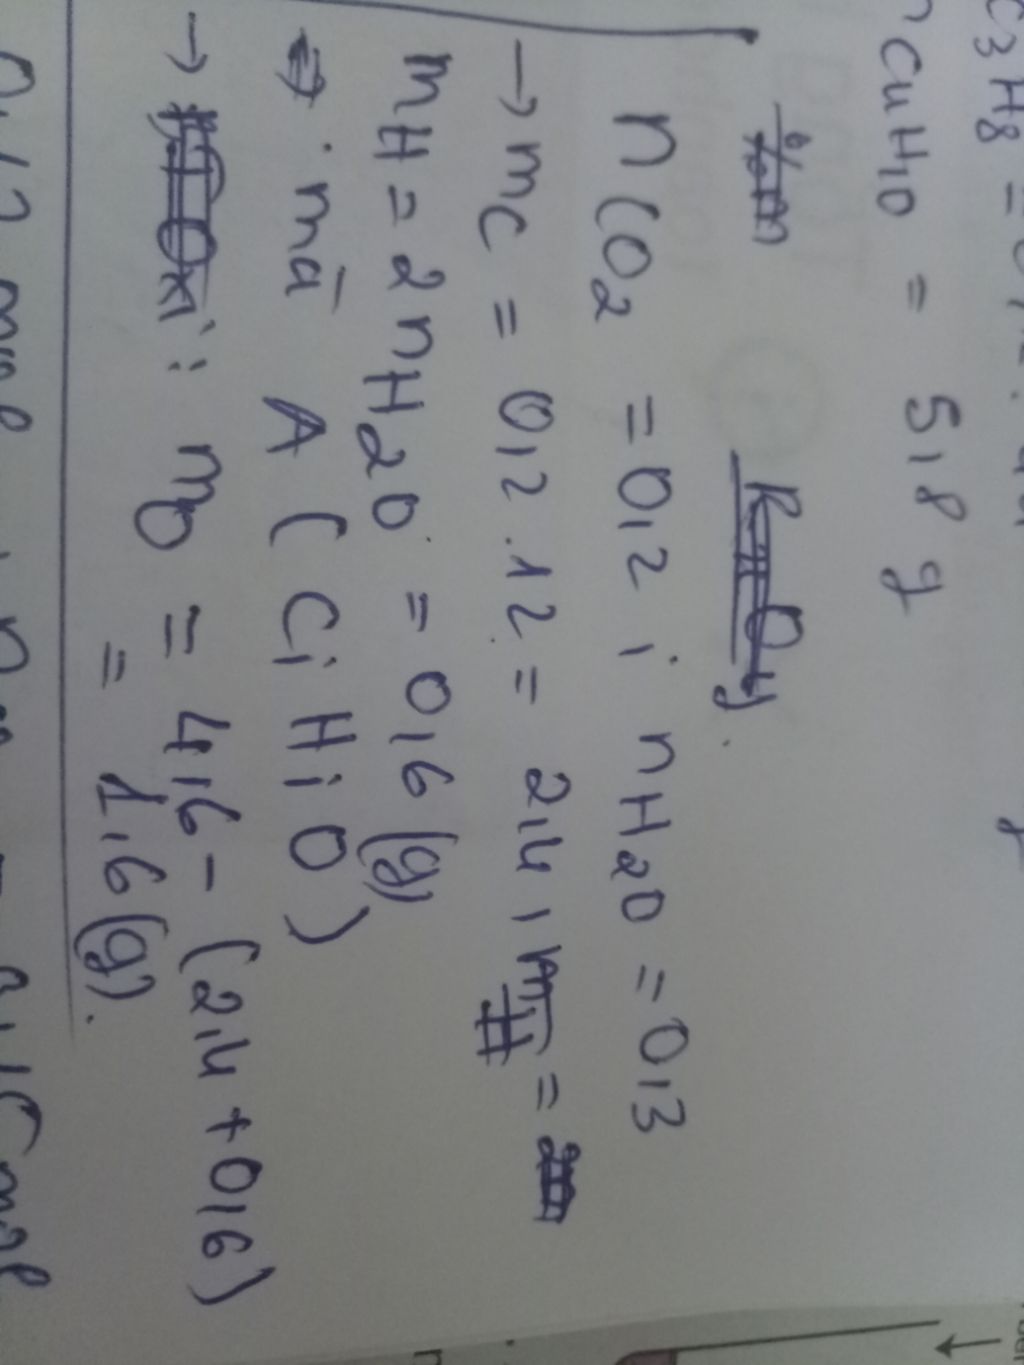 C3H8 = 0,2.
C4H10 = 5,8 g
nCO2 = 0,2 ; nH2O = 0,3
→ mC = 0,2.12 = 2,4 ,
mH = 2nH2O = 0,6 (g)
→ . mà A (C; H; O)
→ : mO = 4,6 - (2,4 + 0,6)
= 1,6 (g).